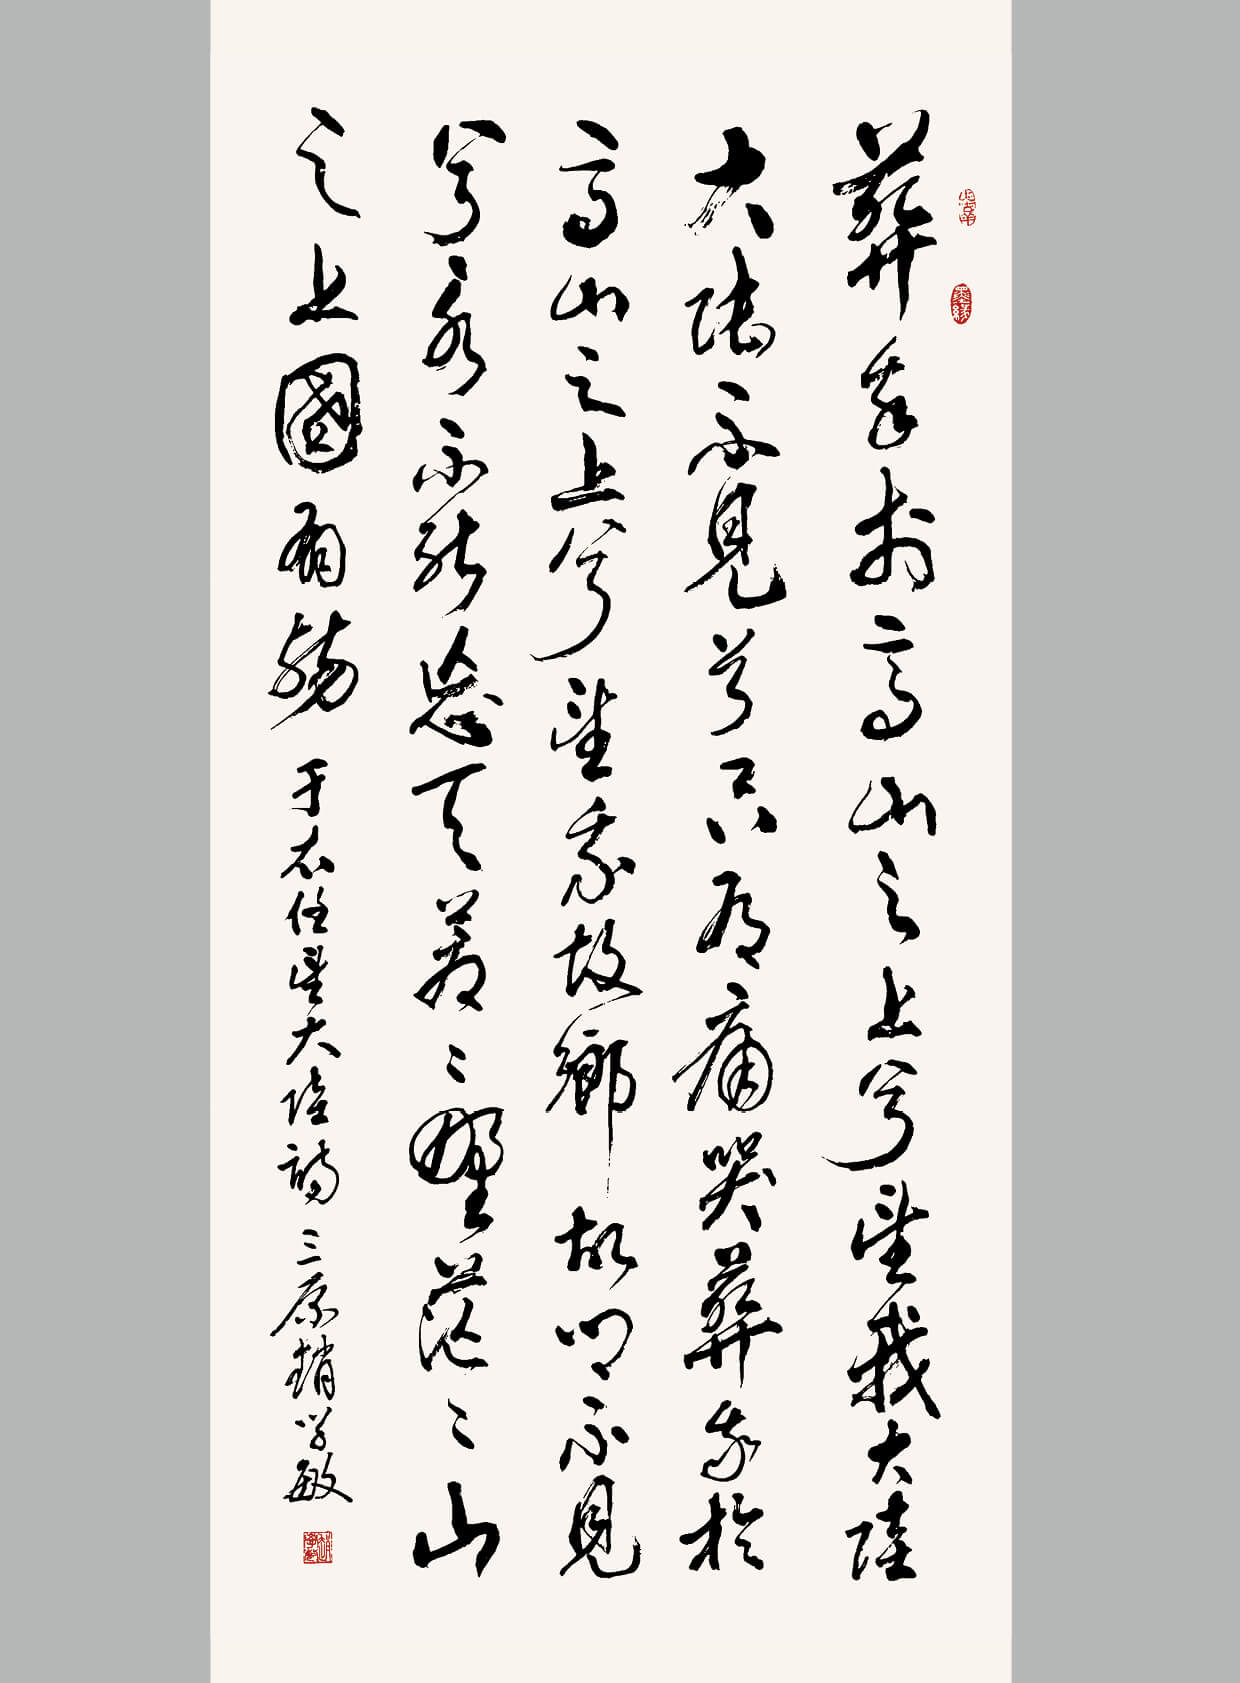 墨緣
葬我於高山之上兮望我大陸
大陸不見兮只有痛哭葬我於
高山之上兮望我故鄉故鄉不見
兮永不能忘天蒼〻野茫〻山
之上國有殤 于右任望大陸詩 三原趙学敏